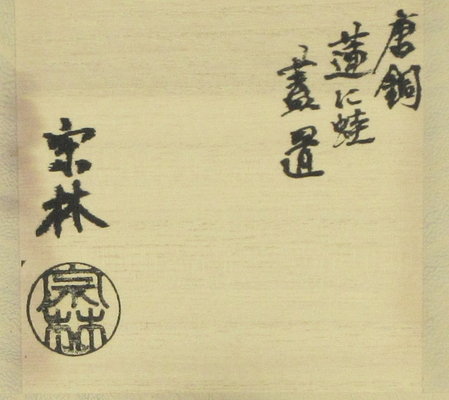 唐銅
蓮に蛙
蓋置
宗林
宗林